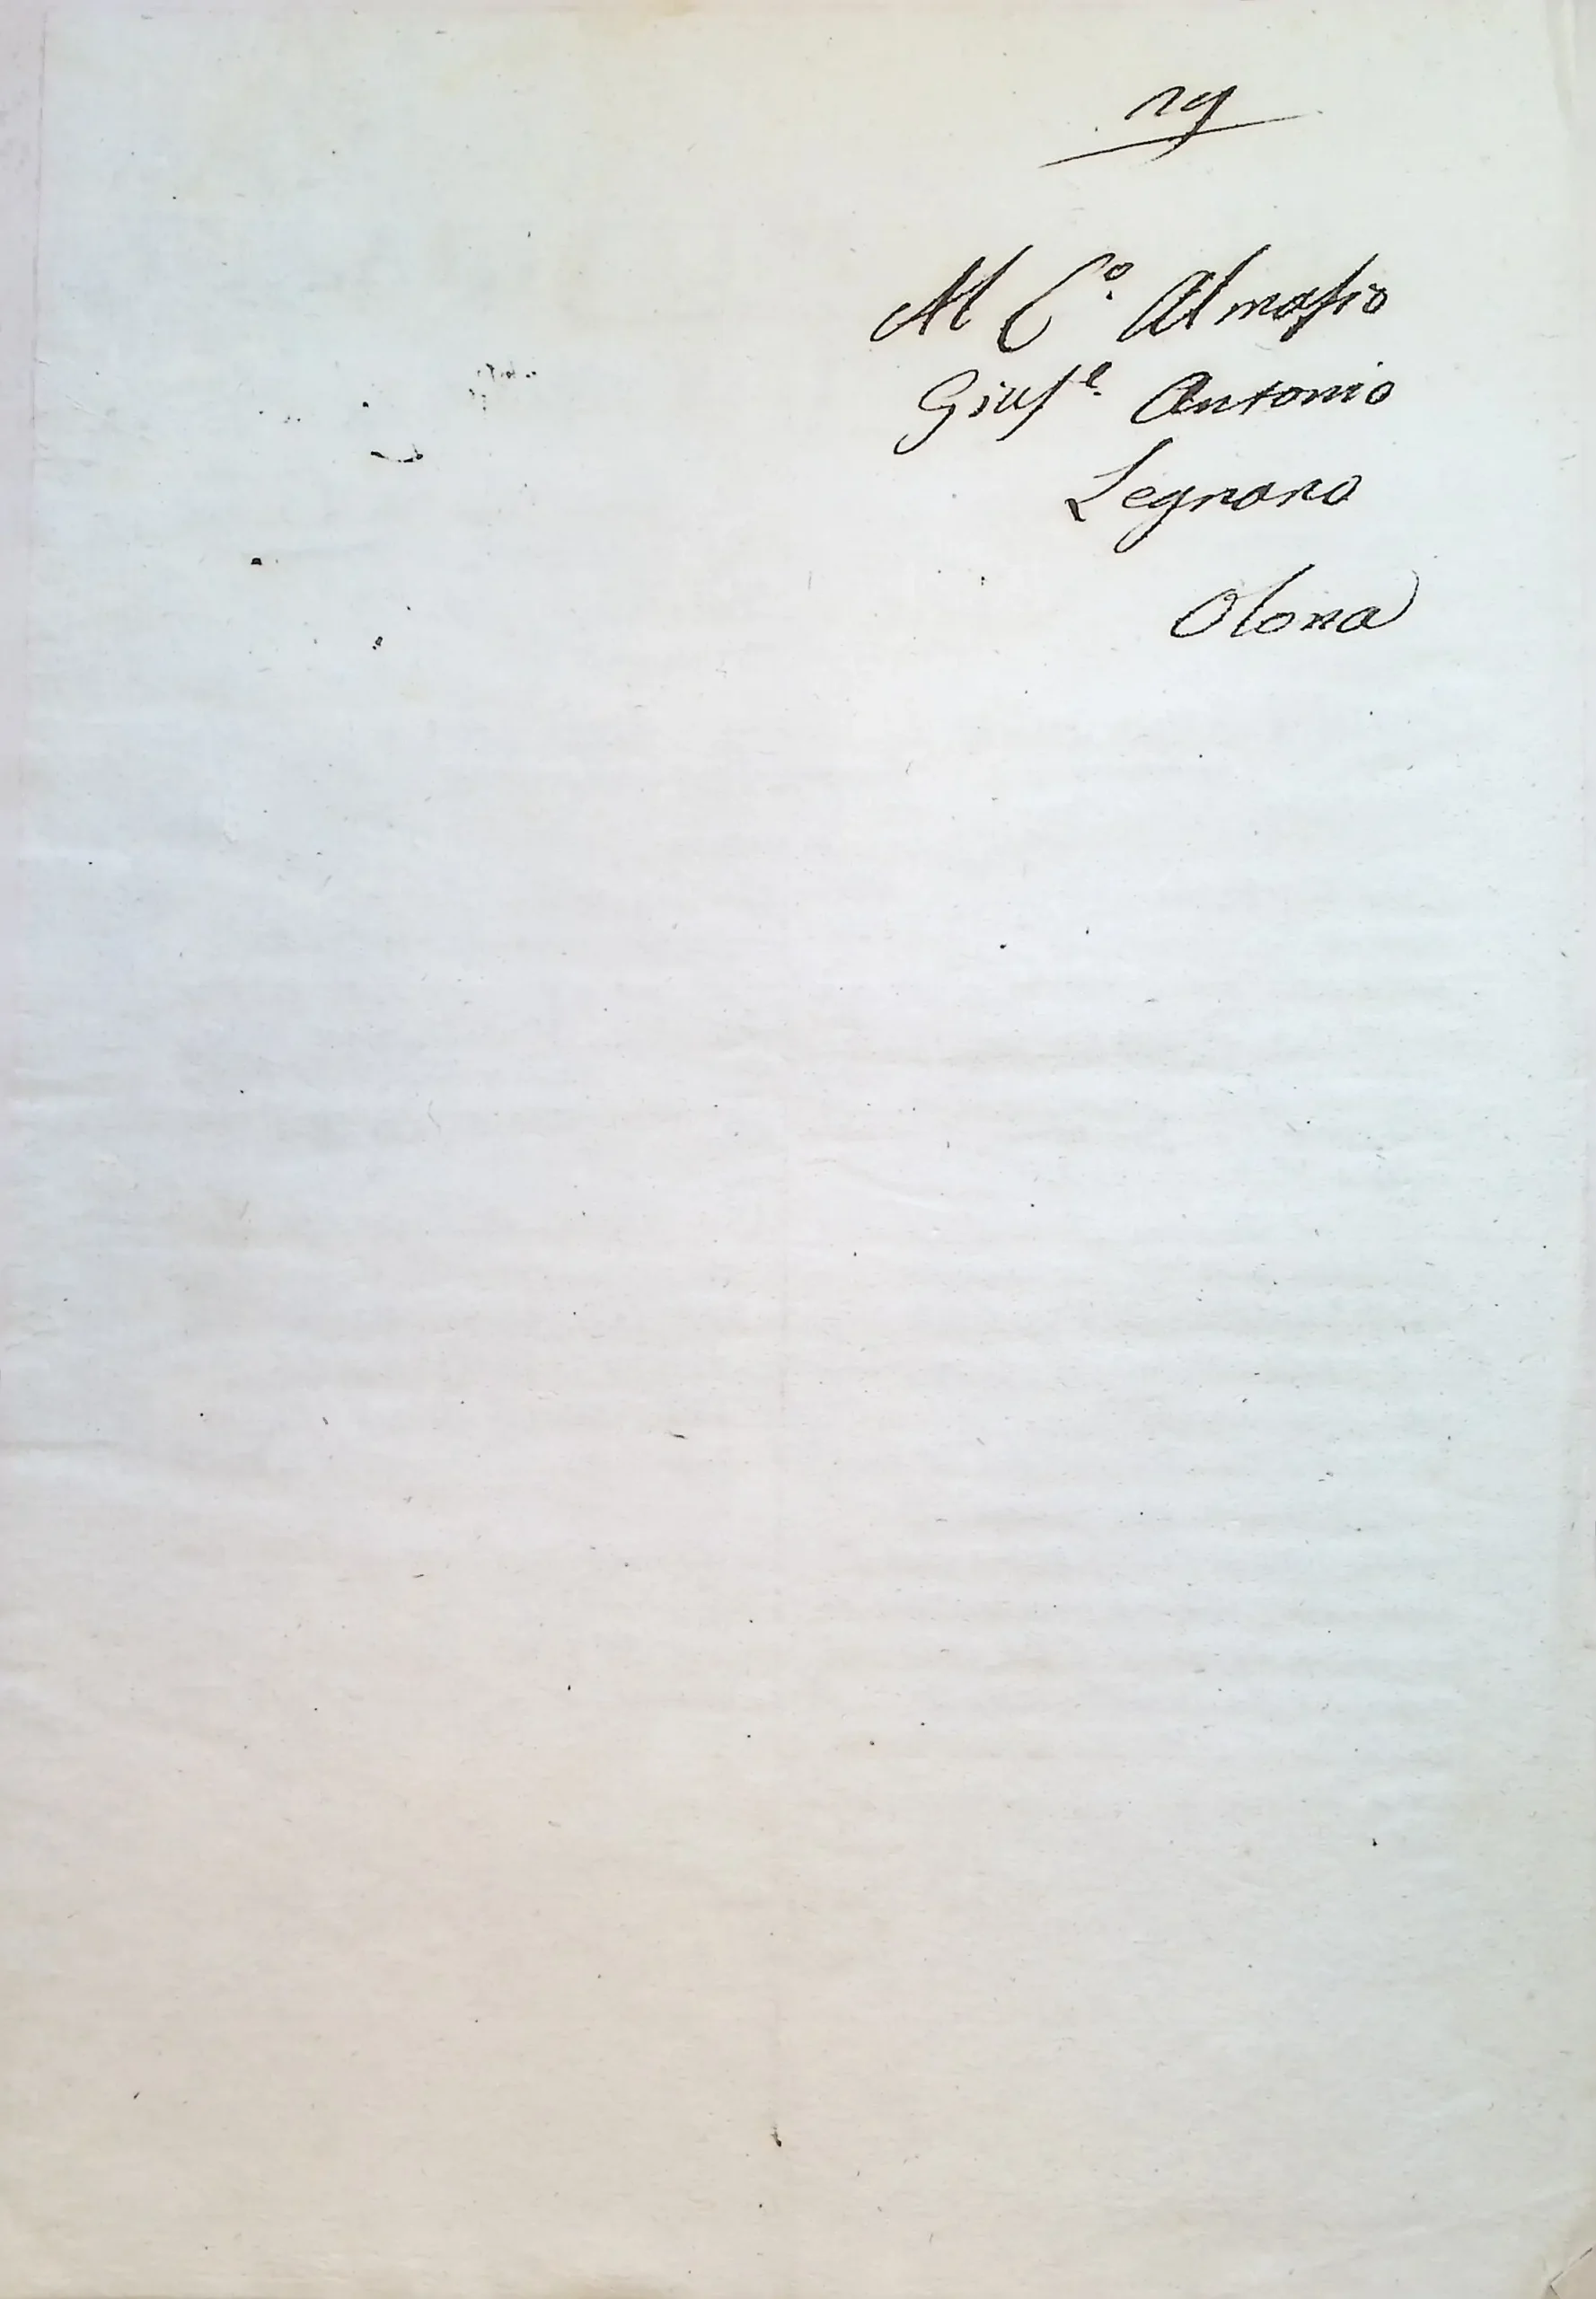 29
Al C.º Almasio
Gius.e Antonio
Legnano
Olona